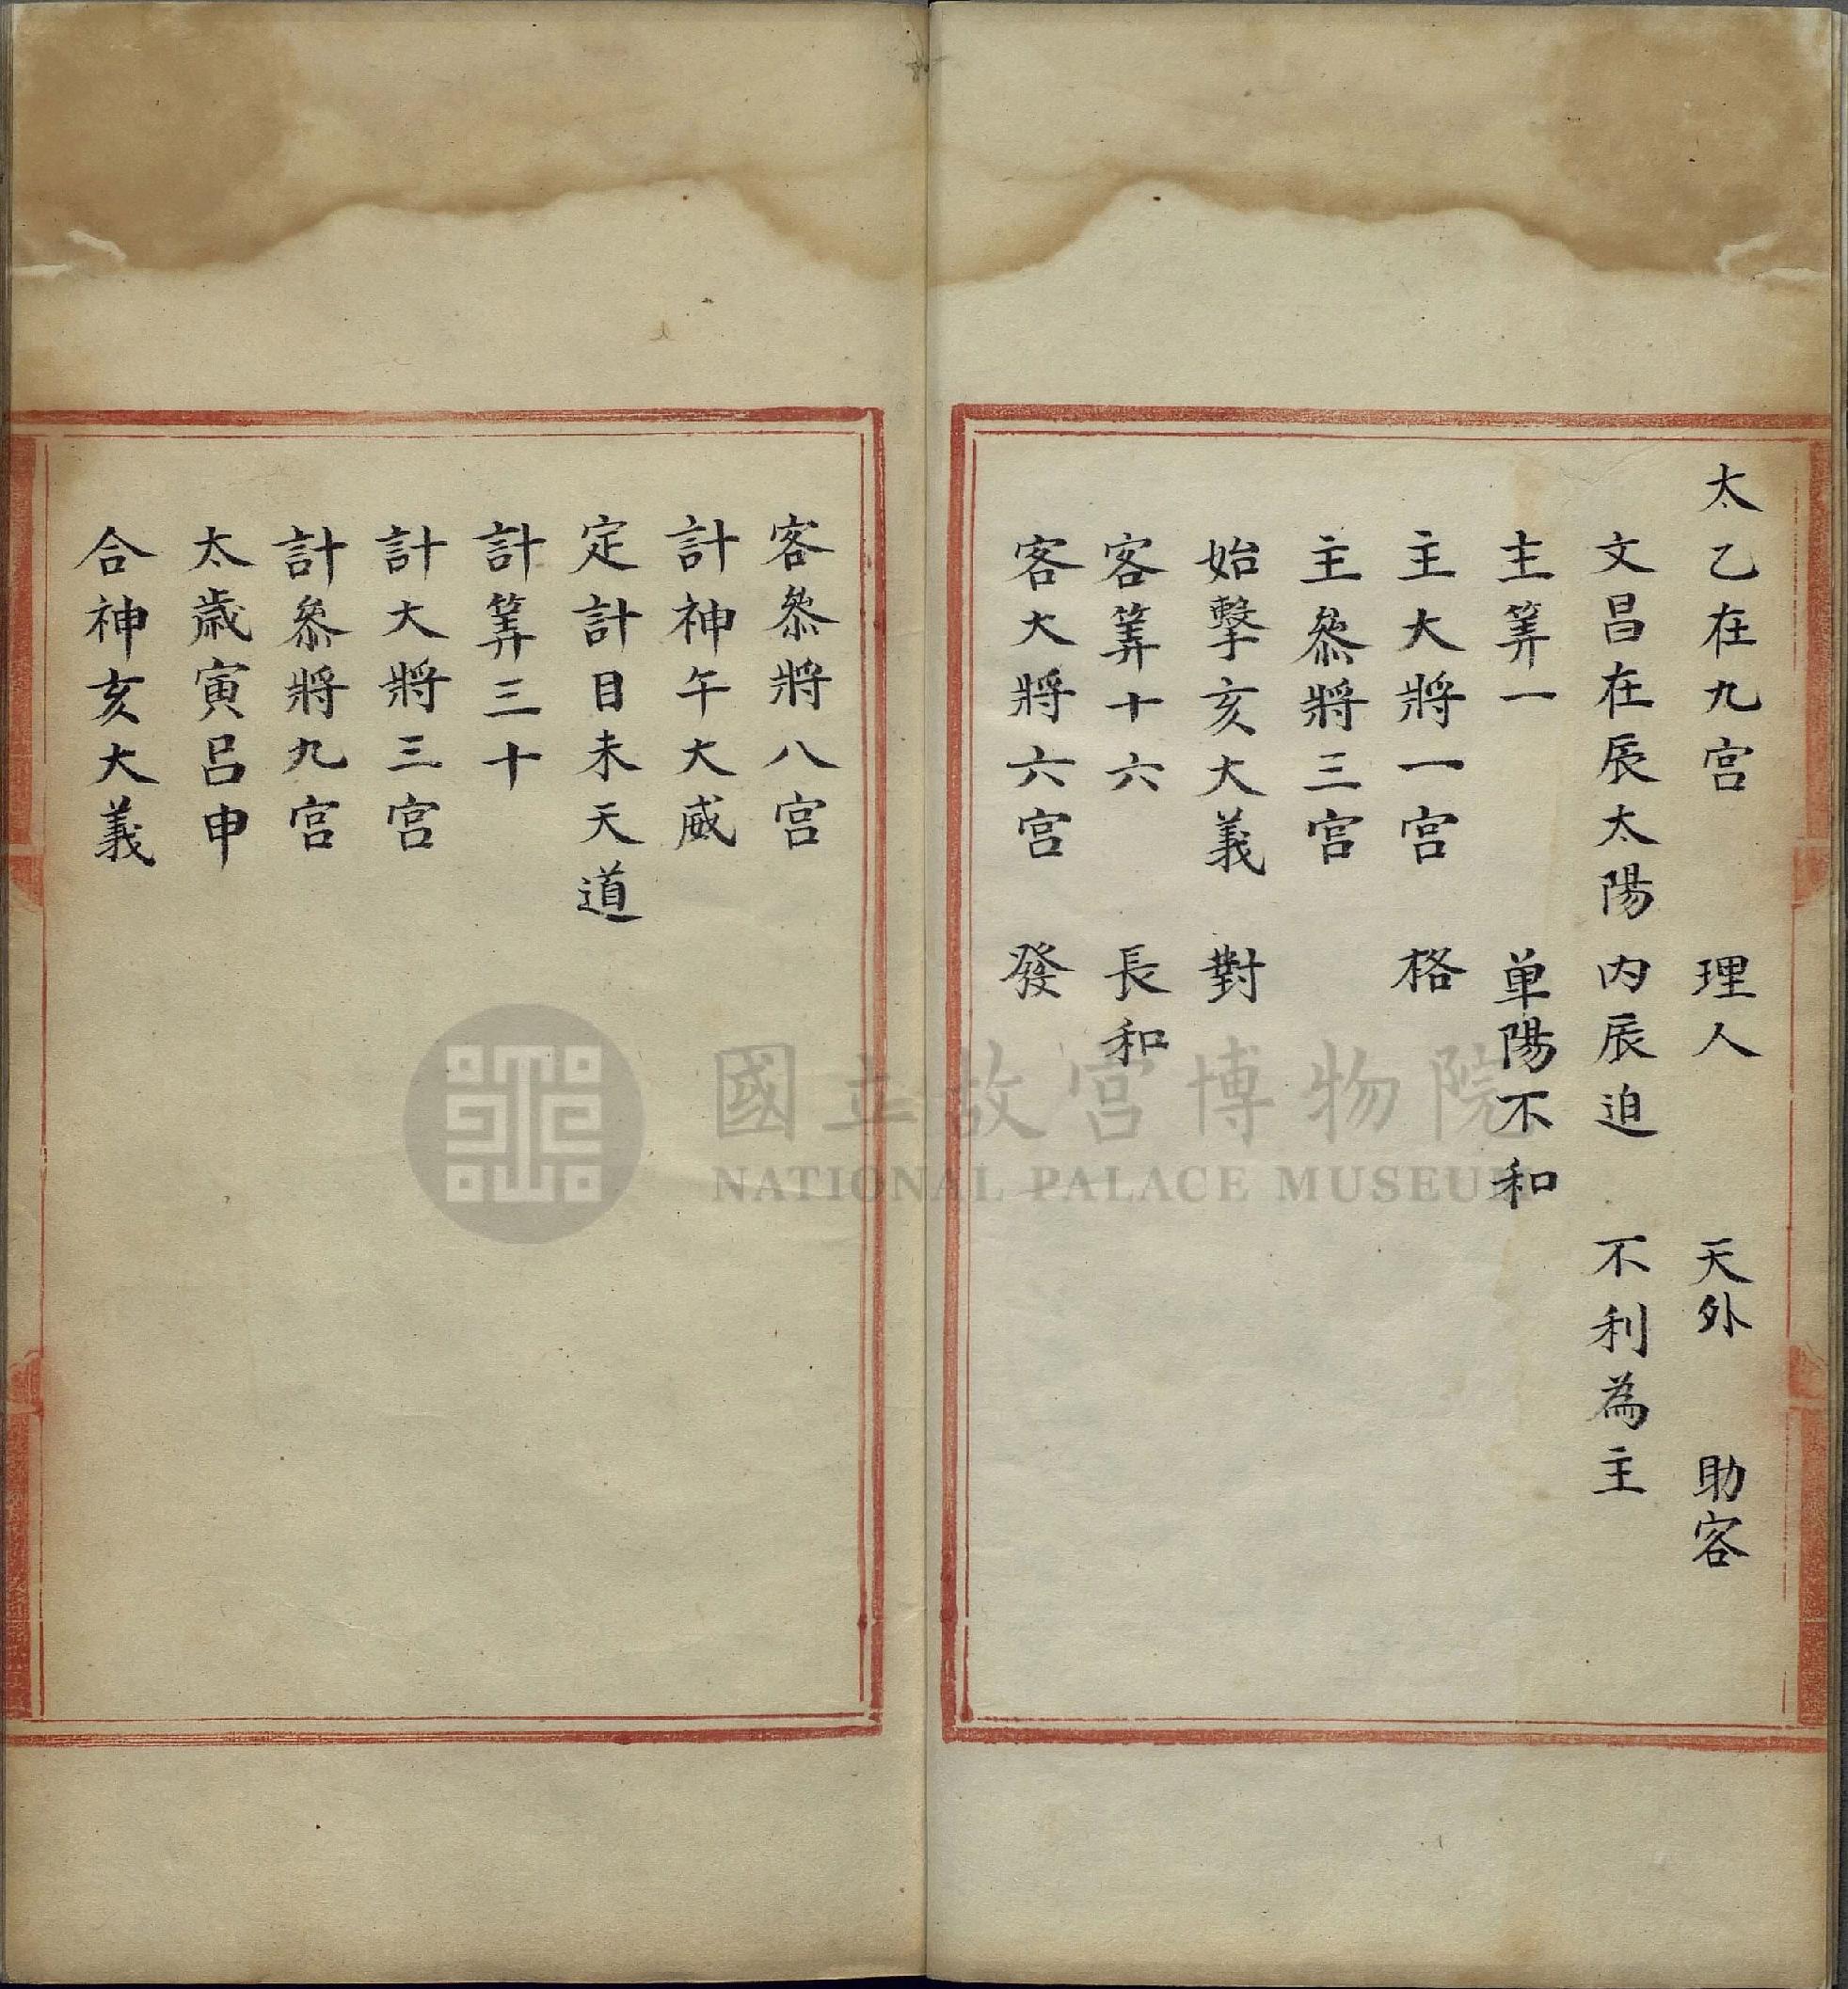 太乙在九宫　理人　天外　助客
文昌在辰太陽　内辰迫　不利為主
主筭一　单陽不和
主大將一宫　格
主叅將三宫
始擊亥大義　對
客筭十六　長和
客大將六宫　發
客叅將八宫
計神午大威
定計目未天道
計筭三十
計大將三宫
計叅將九宫
太歲寅吕申
合神亥大義
國立故宮博物院
NATIONAL PALACE MUSEUM